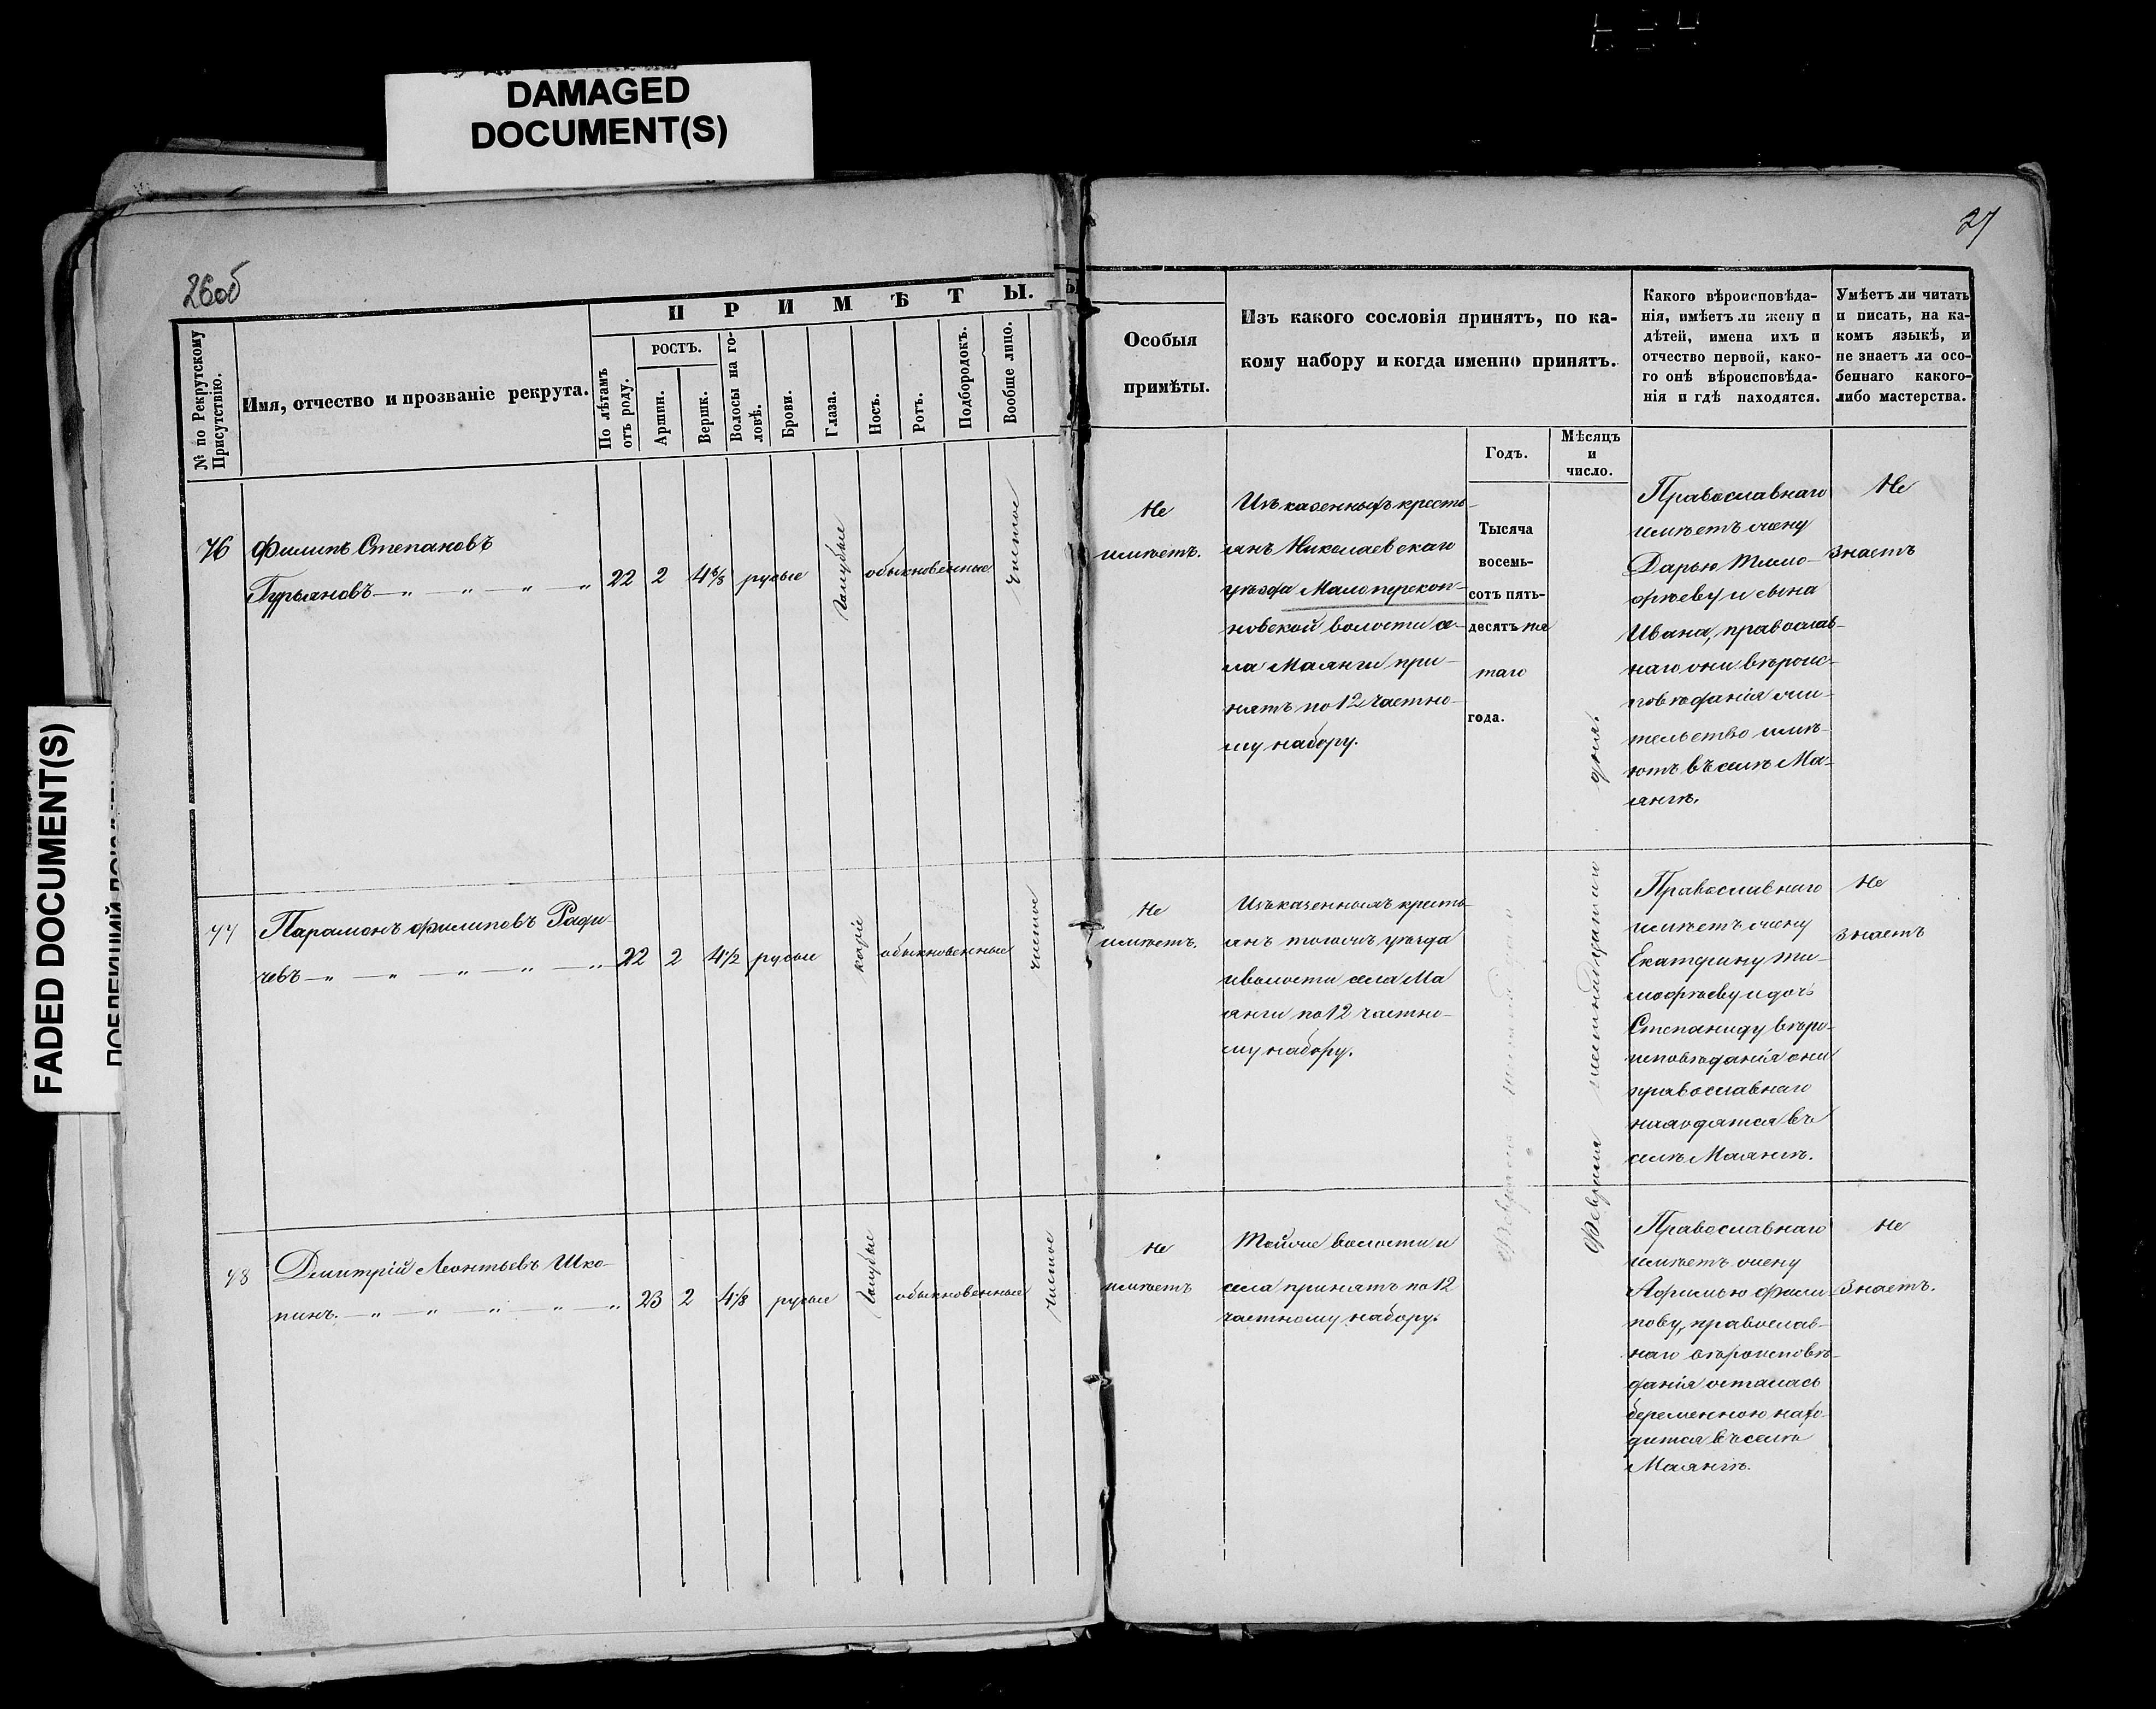 DAMAGED
DOCUMENT(S)
FADED DOCUMENT(S)
26об
27
№ по Рекрутскому
Присутствію.
Имя, отчество и прозваніе рекрута.
ПРИМѢТЫ.
По лѣтамъ
отъ роду.
РОСТЪ.
Аршин.
Вершк.
Волосы на го-
ловѣ.
Брови.
Глаза.
Носъ.
Ротъ.
Подбородокъ.
Вообще лицо.
Особыя
примѣты.
Изъ какого сословія принятъ, по ка-
кому набору и когда именно принятъ.
Годъ.
Мѣсяцъ
и
число.
Какого вѣроисповѣда-
нія, имѣетъ ли жену и
дѣтей, имена ихъ и
отчество первой, како-
го онѣ вѣроисповѣда-
нія и гдѣ находятся.
Умѣетъ ли читать
и писать, на ка-
комъ языкѣ, и
не знаетъ ли осо-
беннаго какого-
либо мастерства.
76
Филипъ Степановъ
Гурьяновъ — " — " — " — "
22
2
4 6/8
русые
голубые
обыкновенные
чистое
Не
имѣетъ.
Изъ казенныхъ кресть-
янъ Николаевскаго
уѣзда Малоперекоп-
новской волости се-
ла Маянги при-
нятъ по 12 частно-
му набору.
Тысяча
восемь-
сотъ пять-
десятъ пя
таго
года.
Февраля шестнадцатаго дня.
Православнаго
имѣетъ жену
Дарью Тимо-
фѣеву и сына
Ивана, православ-
наго они вѣроис-
повѣданія жи-
тельство имѣ-
ютъ въ селѣ Ма-
янгѣ.
Не
знаетъ
77
Парамонъ Филиповъ Ради-
чевъ — " — " — " — " — "
22
2
4 1/2
русые
каріе
обыкновенные
чистое
Не
имѣетъ.
Изъ казенныхъ кресть-
янъ тогожъ уѣзда
и волости села Ма
янги по 12 частно-
му набору.
Православнаго
имѣетъ жену
Екатерину Ти-
мофѣеву и дочь
Степаниду вѣро-
исповѣданія они
православнаго
находятся въ
селѣ Маянгѣ.
Не
знаетъ
78
Дмитрій Леонтьевъ Шко-
пинъ. — " — " — " — " — "
23
2
4/8
русые
голубые
обыкновенные
чистое
Не
имѣетъ
Тойже волости и
села принятъ по 12
частному набору.
Православнаго
имѣетъ жену
Афимью Фили-
пову, православ-
наго вѣроисповѣ-
данія осталась
беременною нахо-
дится въ селѣ
Маянгѣ.
Не
знаетъ.